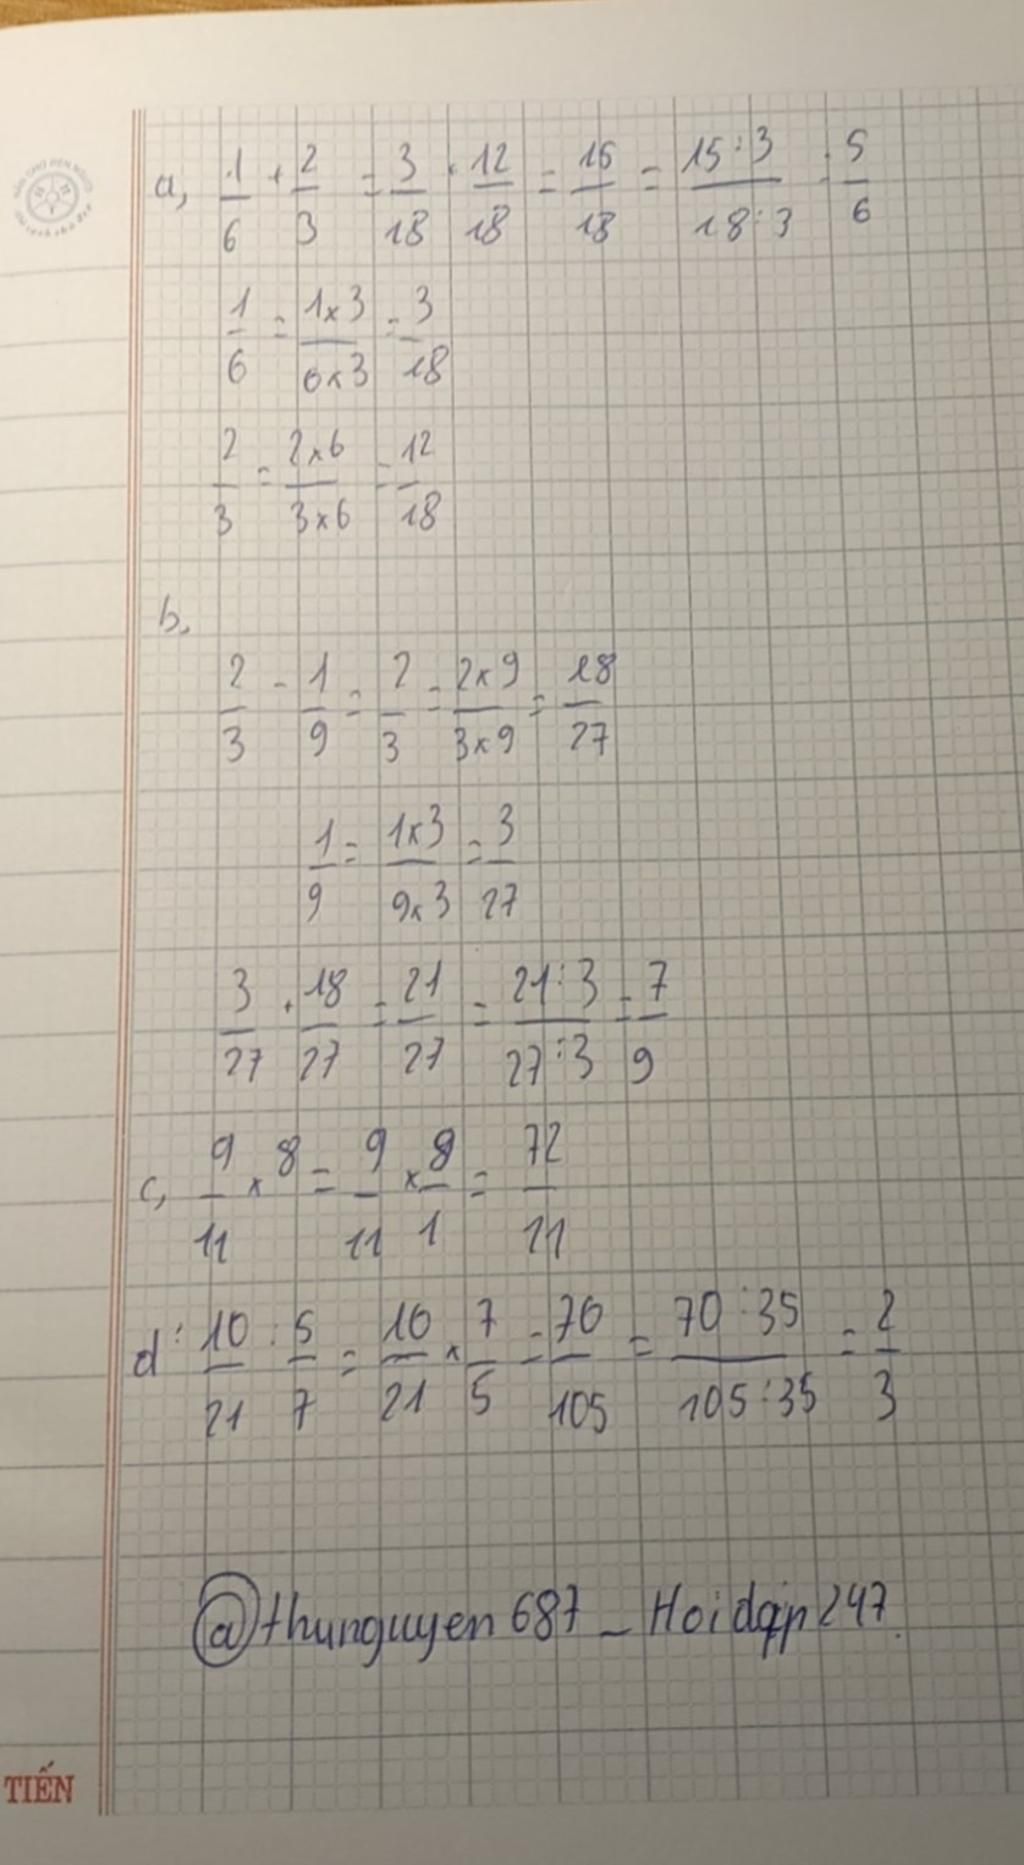 a, 1/6 + 2/3 = 3/18 + 12/18 = 15/18 = 15:3/18:3 = 5/6
1/6 = 1x3/6x3 = 3/18
2/3 = 2x6/3x6 = 12/18
b,
2/3 - 1/9 = 2/3 = 2x9/3x9 = 18/27
1/9 = 1x3/9x3 = 3/27
3/27 + 18/27 = 21/27 = 21:3/27:3 = 7/9
c, 9/11 x 8 = 9/11 x 8/1 = 72/11
d: 10/21 : 5/7 = 10/21 x 7/5 = 70/105 = 70:35/105:35 = 2/3
@thunguyen687_Hoidap247.
TIẾN